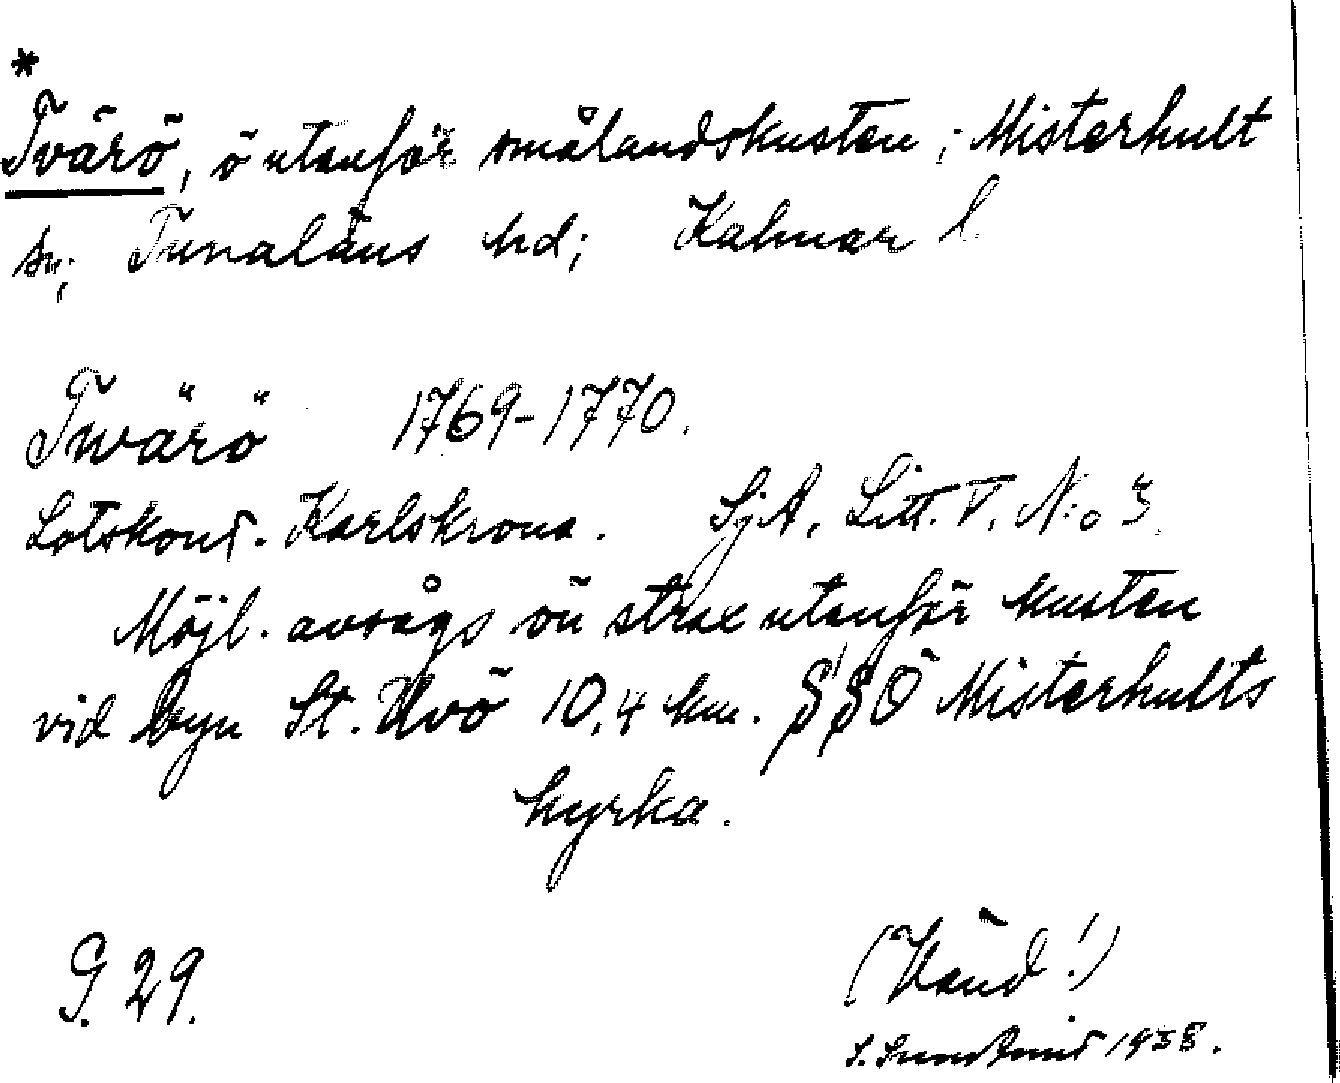 *
Tvärö, ö utanför smålandskusten; Misterhult
sn; Tunaläns hd; Kalmar l.
Twärö 1769-1770.
Lotskont. Karlskrona. SjA. Litt. V. N:o 3.
Möjl. avsågs ön strax utanför kusten
vid byn St. Uvö 10,4 km. SSO Misterhults
kyrka.
G. 29.
(Vänd!)
1938.